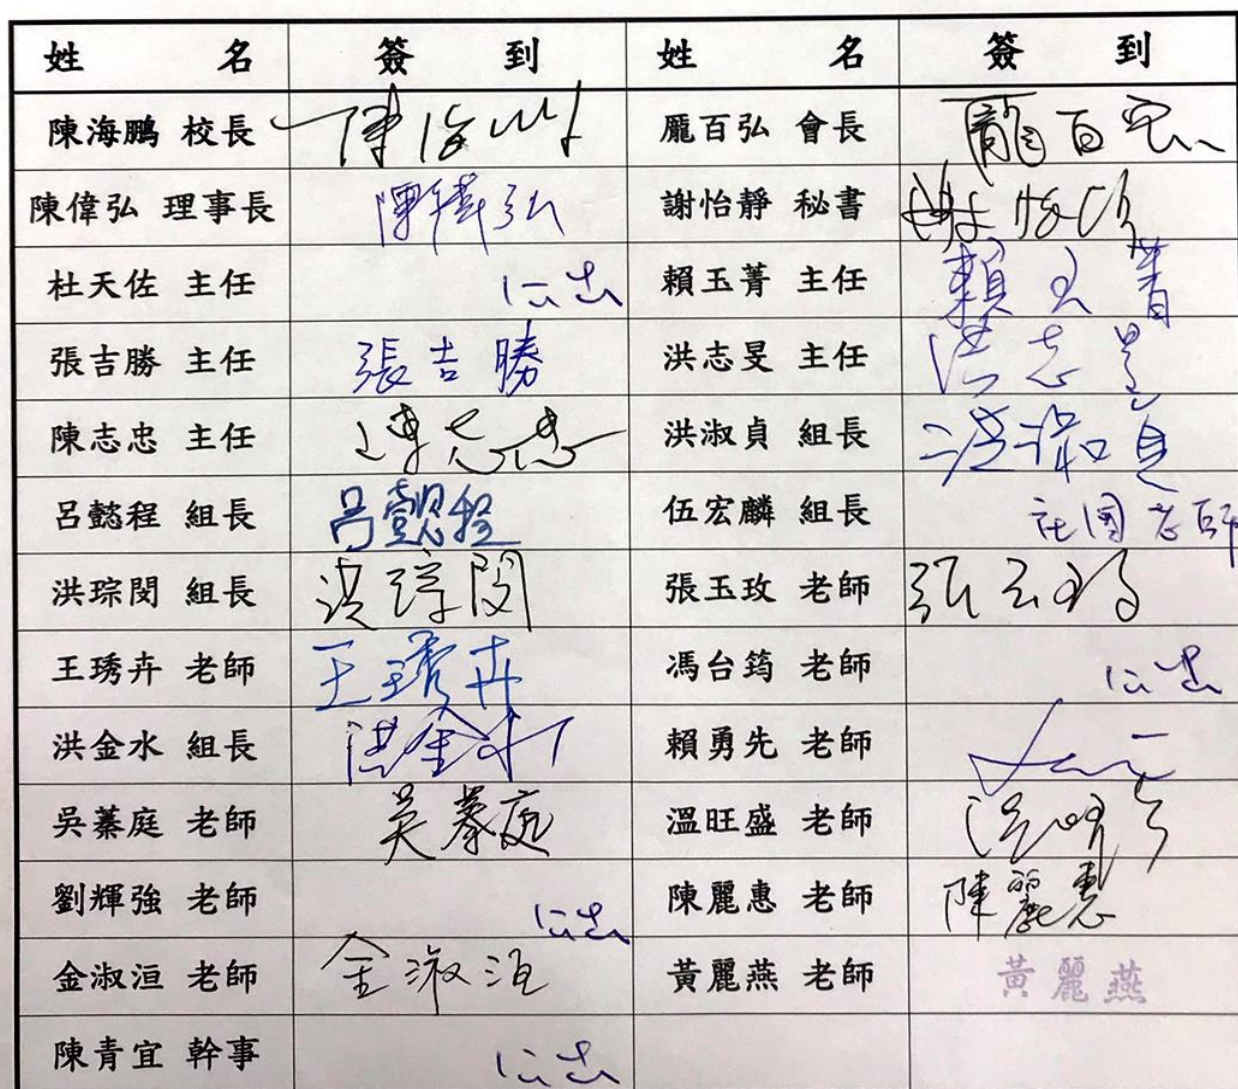 姓 名 簽 到 姓 名 簽 到
陳海鵬 校長 陳海鵬 龎百弘 會長 龎百弘
陳偉弘 理事長 陳偉弘 謝怡靜 秘書 謝怡靜
杜天佐 主任 公出 賴玉菁 主任 賴玉菁
張吉勝 主任 張吉勝 洪志旻 主任 洪志旻
陳志忠 主任 陳志忠 洪淑貞 組長 洪淑貞
呂懿程 組長 呂懿程 伍宏麟 組長 社團老師
洪琮閔 組長 洪琮閔 張玉玫 老師 張玉玫
王琇卉 老師 王琇卉 馮台筠 老師 公出
洪金水 組長 洪金水 賴勇先 老師
吳蓁庭 老師 吳蓁庭 溫旺盛 老師 溫旺盛
劉輝強 老師 公出 陳麗惠 老師 陳麗惠
金淑洹 老師 金淑洹 黃麗燕 老師 黃麗燕
陳青宜 幹事 公出